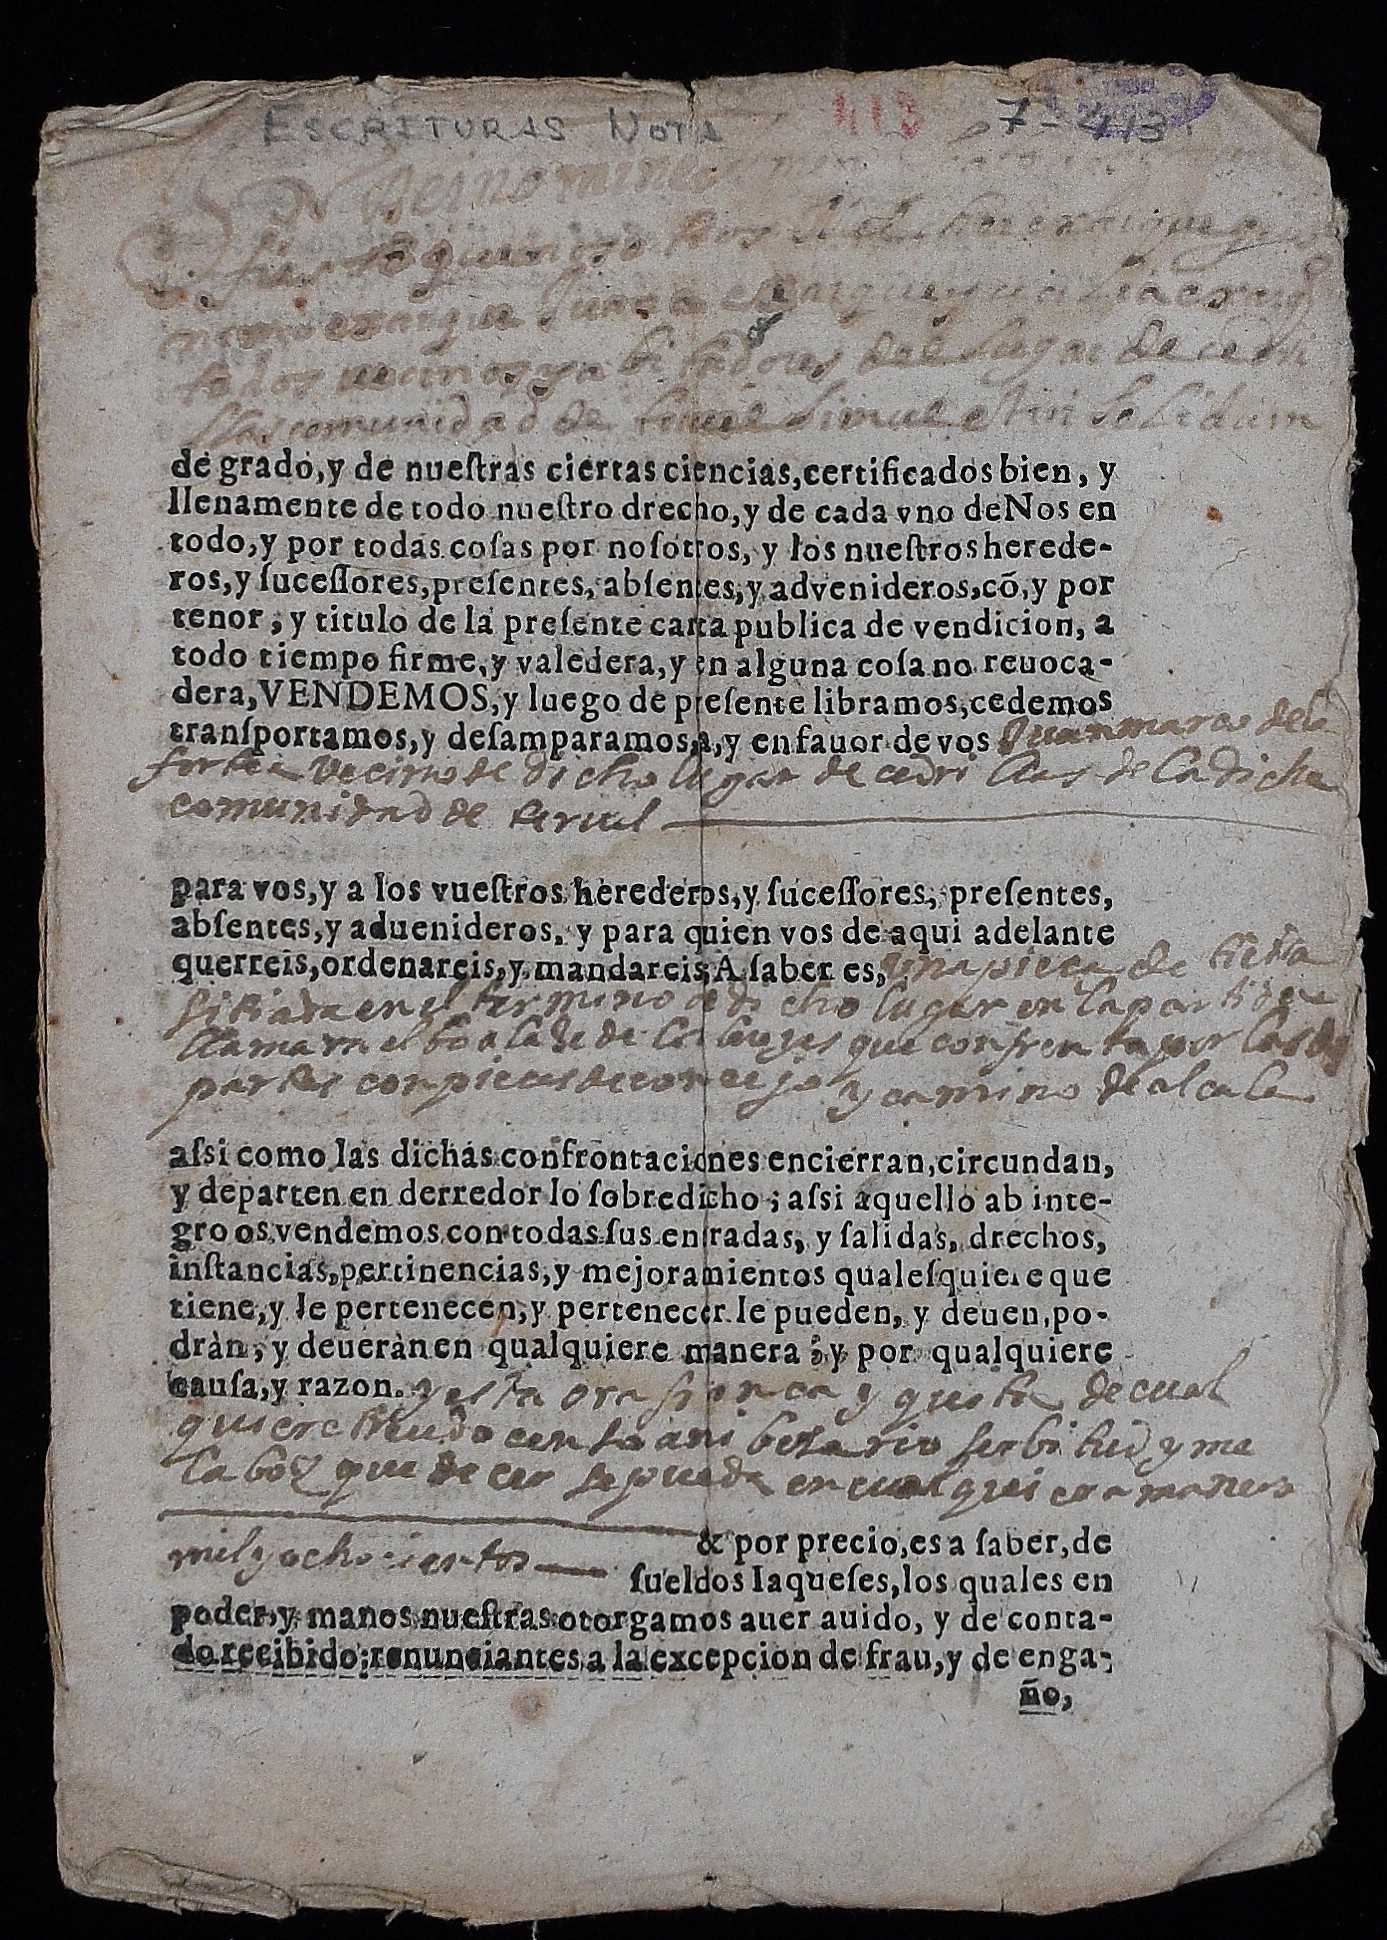 ESCRITURAS NOTA 413 7-413
Dei nomine
todos vecinos y a bi tadores del lugar de cedri
llas comunidad de teruel simul et in solidum
de grado, y de nueſtras ciertas ciencias, certificados bien, y
llenamente de todo nueſtro drecho, y de cada vno de Nos en
todo, y por todas coſas por noſotros, y los nueſtros herede-
ros, y ſuceſſores, preſentes, abſentes, y advenideros, cõ, y por
tenor, y titulo de la preſente carta publica de vendicion, a
todo tiempo firme, y valedera, y en alguna coſa no reuoca-
dera, VENDEMOS, y luego de preſente libramos, cedemos
tranſportamos, y deſamparamos, a, y en fauor de vos Juan
vecino de dicho lugar de cedri llas de la dicha
comunidad de teruel
para vos, y a los vueſtros herederos, y ſuceſſores, preſentes,
abſentes, y aduenideros, y para quien vos de aqui adelante
querreis, ordenareis, y mandareis, A ſaber es, una pieza de tierra
sitiada en el termino de di cho lugar en la partida
llaman el que confrenta por las dos
partes con piezas de concejo y camino de alcala
aſsi como las dichas confrontaciones encierran, circundan,
y departen en derredor lo ſobredicho; aſsi aquello ab inte-
gro os vendemos con todas ſus entradas, y ſalidas, drechos,
inſtancias, pertinencias, y mejoramientos qualeſquiere que
tiene, y le pertenecen, y pertenecer le pueden, y deuen, po-
dràn, y deueràn en qualquiere manera; y por qualquiere
cauſa, y razon. y esta ora franca y quita de cual
quiere treudo censo ani bersario serbi tud y ma
la boz que de cir se pueda en cualqui era manera
& por precio, es a ſaber, de
mil y ocho cientos ſueldos Iaqueſes, los quales en
poder, y manos nueſtras otorgamos auer auido, y de conta-
do recibido; renunciantes a la excepcion de frau, y de enga-
ño,